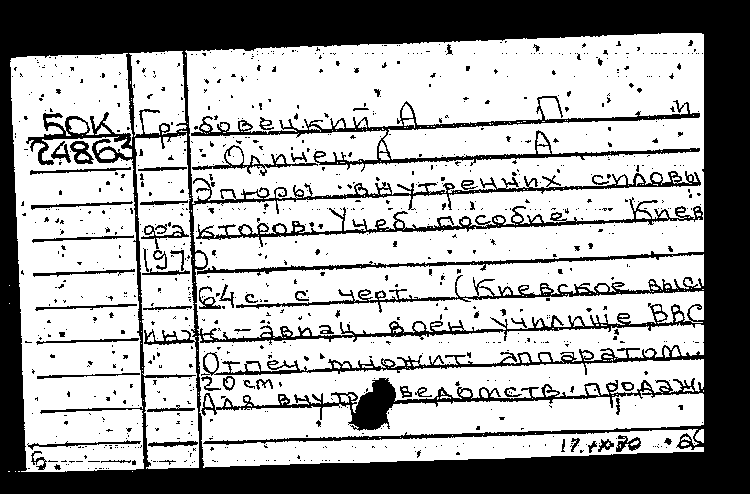 БОК Грабовецкий А П и
24863 Одинец, А А
Эпюры внутренних силовы
факторов. Учеб. пособие. - Киев
1970.
64 с. с черт. (Киевское высш
инж.-авиац. воен. училище ВВС
Отпеч. множит. аппаратом.
20 см.
Для внутр ведомств. продажи
б 17. 70